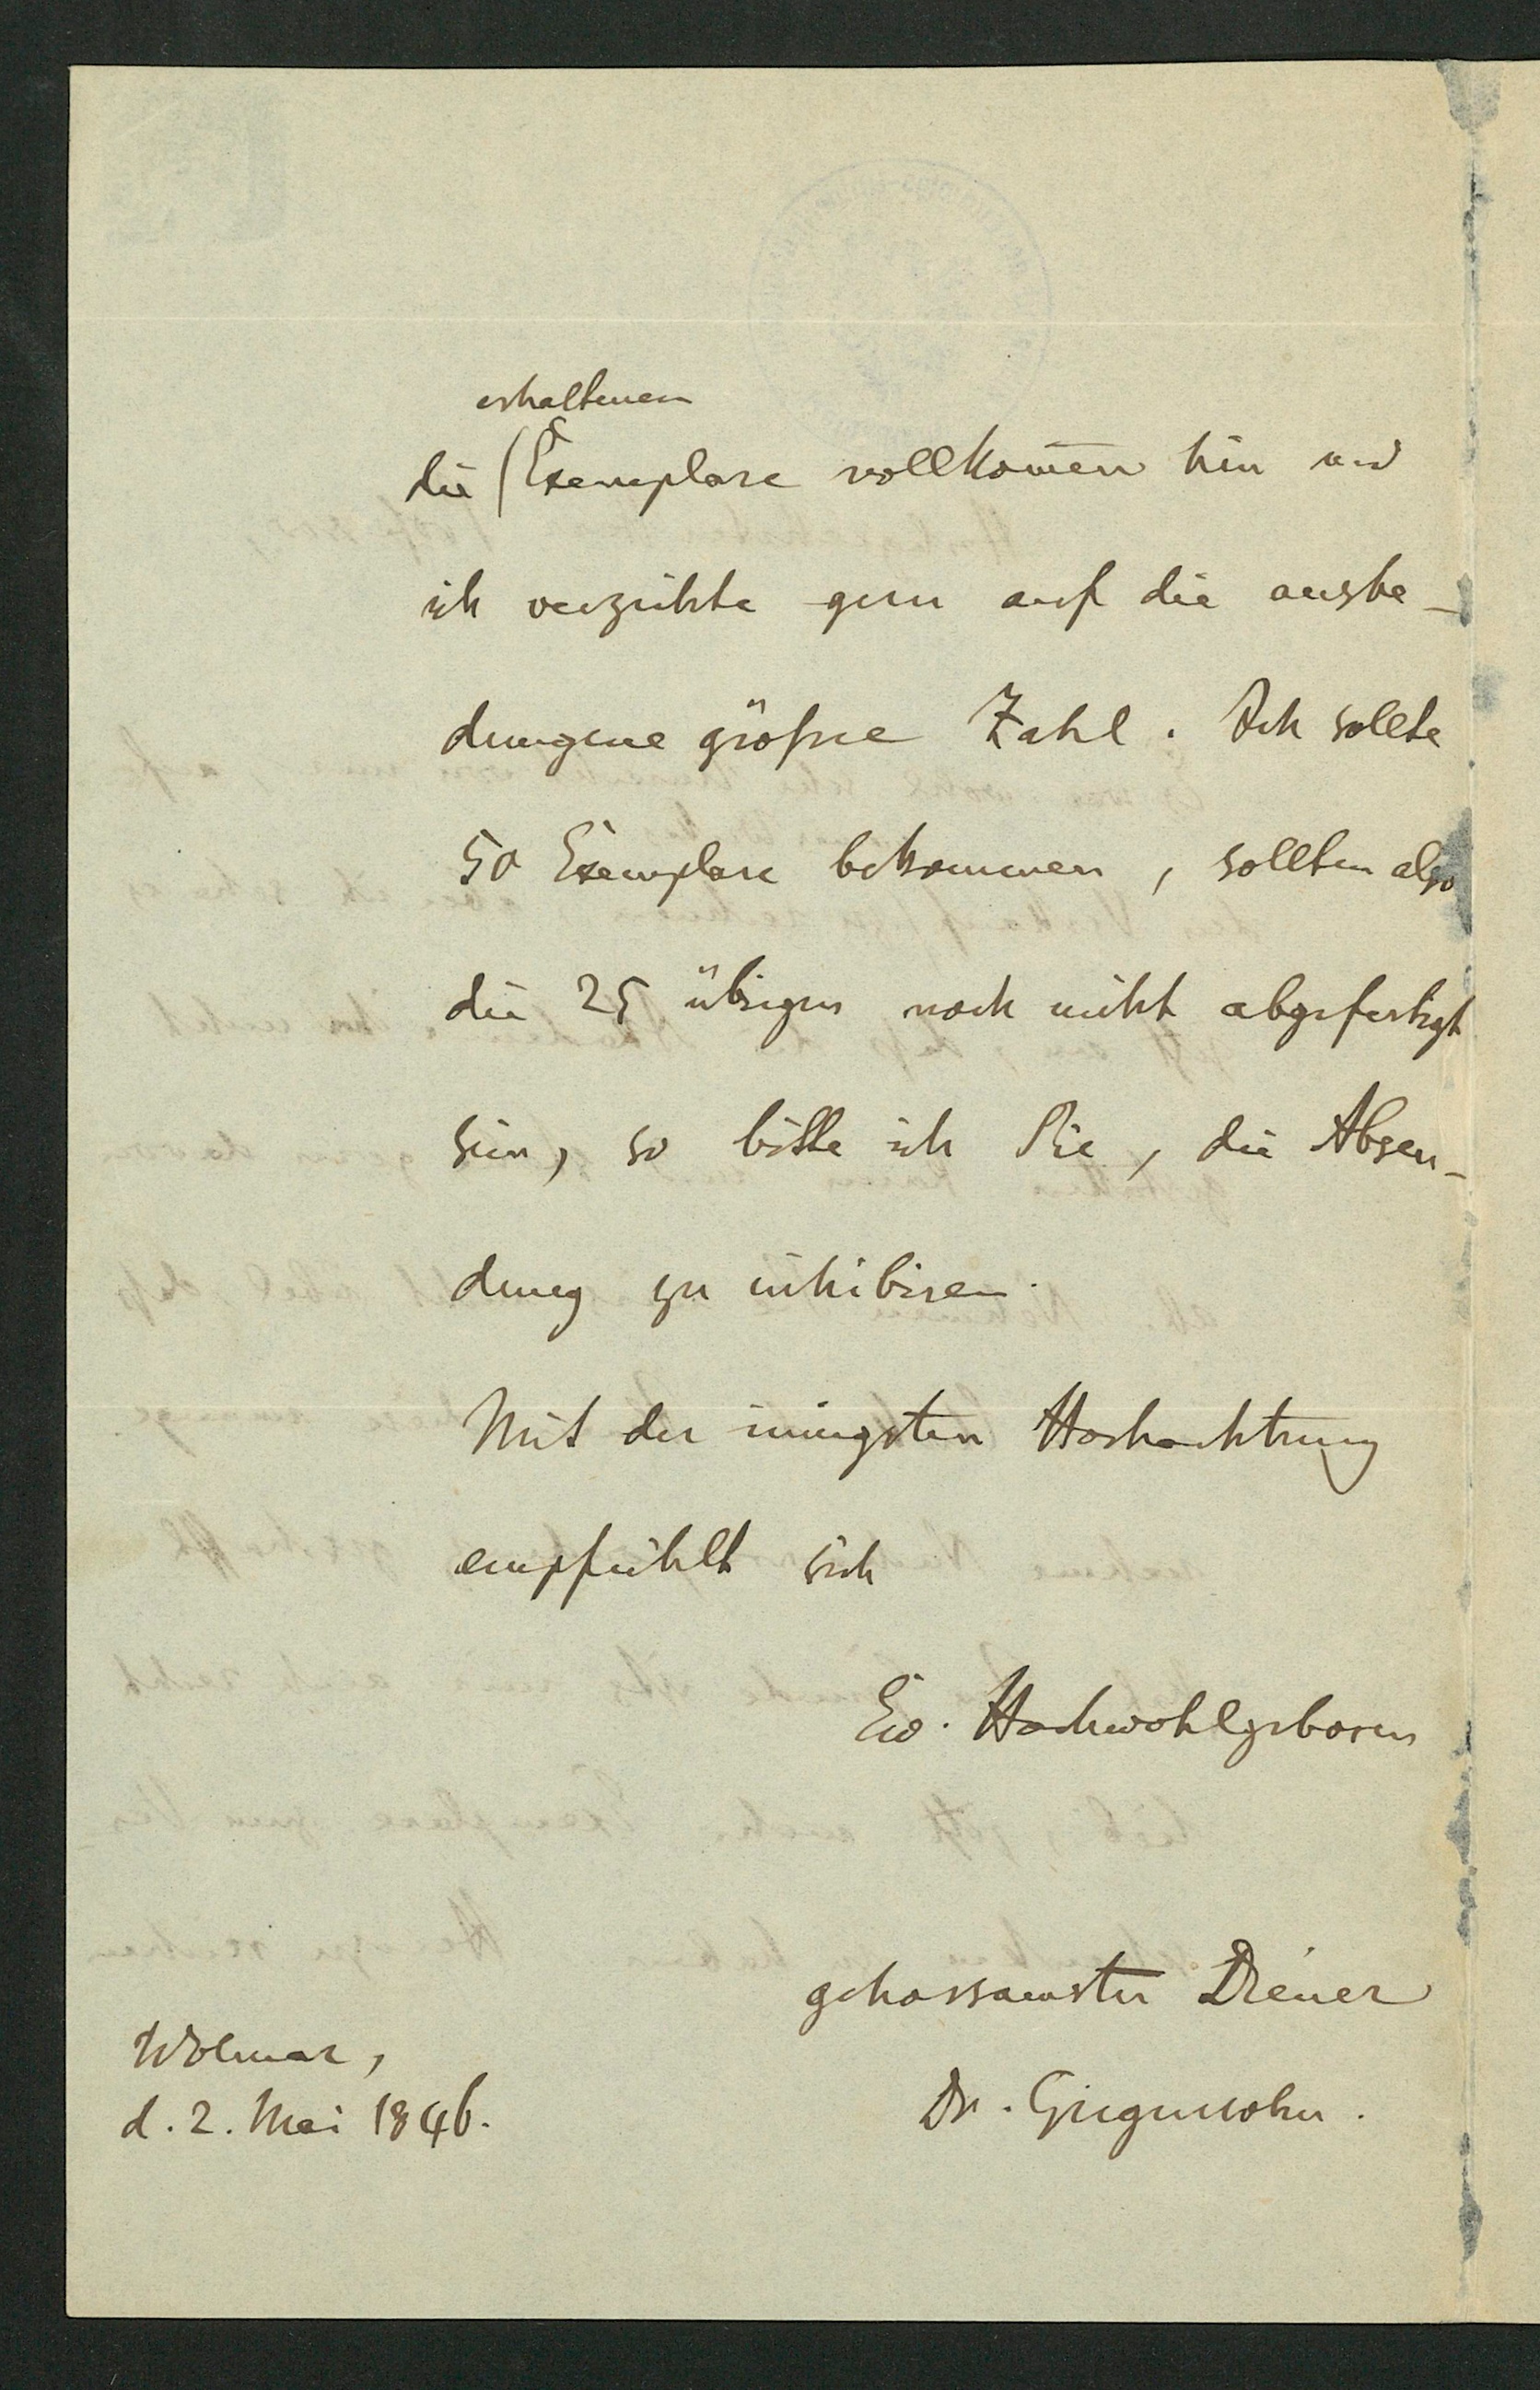 erhaltenen
die Exemplare vollkom̅en hin und
ich verzichte gern auf die ausbe-
dungene größre Zahl. Ich sollte
50 Exemplare bekommen, sollten also
die 25 übrigen noch nicht abgefertigt
sein, so bitte ich Sie, die Absen-
dung zu inhibiren.
Mit der innigsten Hochachtung
empfiehlt sich
Ew. Hochwohlgeboren
gehorsamster Diener
Dr. Girgensohn.
Wolmar,
d. 2. Mai 1846.